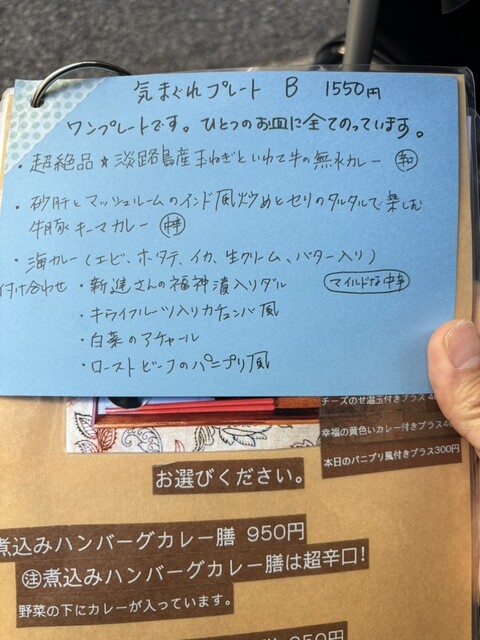 気まぐれプレート B 1550円
ワンプレートです。ひとつのお皿に全てのっています。
・超絶品★淡路島産玉ねぎといわて牛の無水カレー 辛和
・砂肝とマッシュルームのインド風炒めとセリのタルタルで楽しむ
牛豚キーマカレー 中辛
・海カレー(エビ、ホタテ、イカ、生クリーム、バター入り)
付け合わせ ・新進さんの福神漬入りダル マイルドな中辛
・キウイフルーツ入りカチュンバ風
・白菜のアチャール
・ローストビーフのパニプリ風
チーズのせ温玉付きプラス4
幸福の黄色いカレー付きプラス4
本日のパニプリ風付きプラス300円
お選びください。
煮込みハンバーグカレー膳 950円
注煮込みハンバーグカレー膳は超辛口!
野菜の下にカレーが入っています。